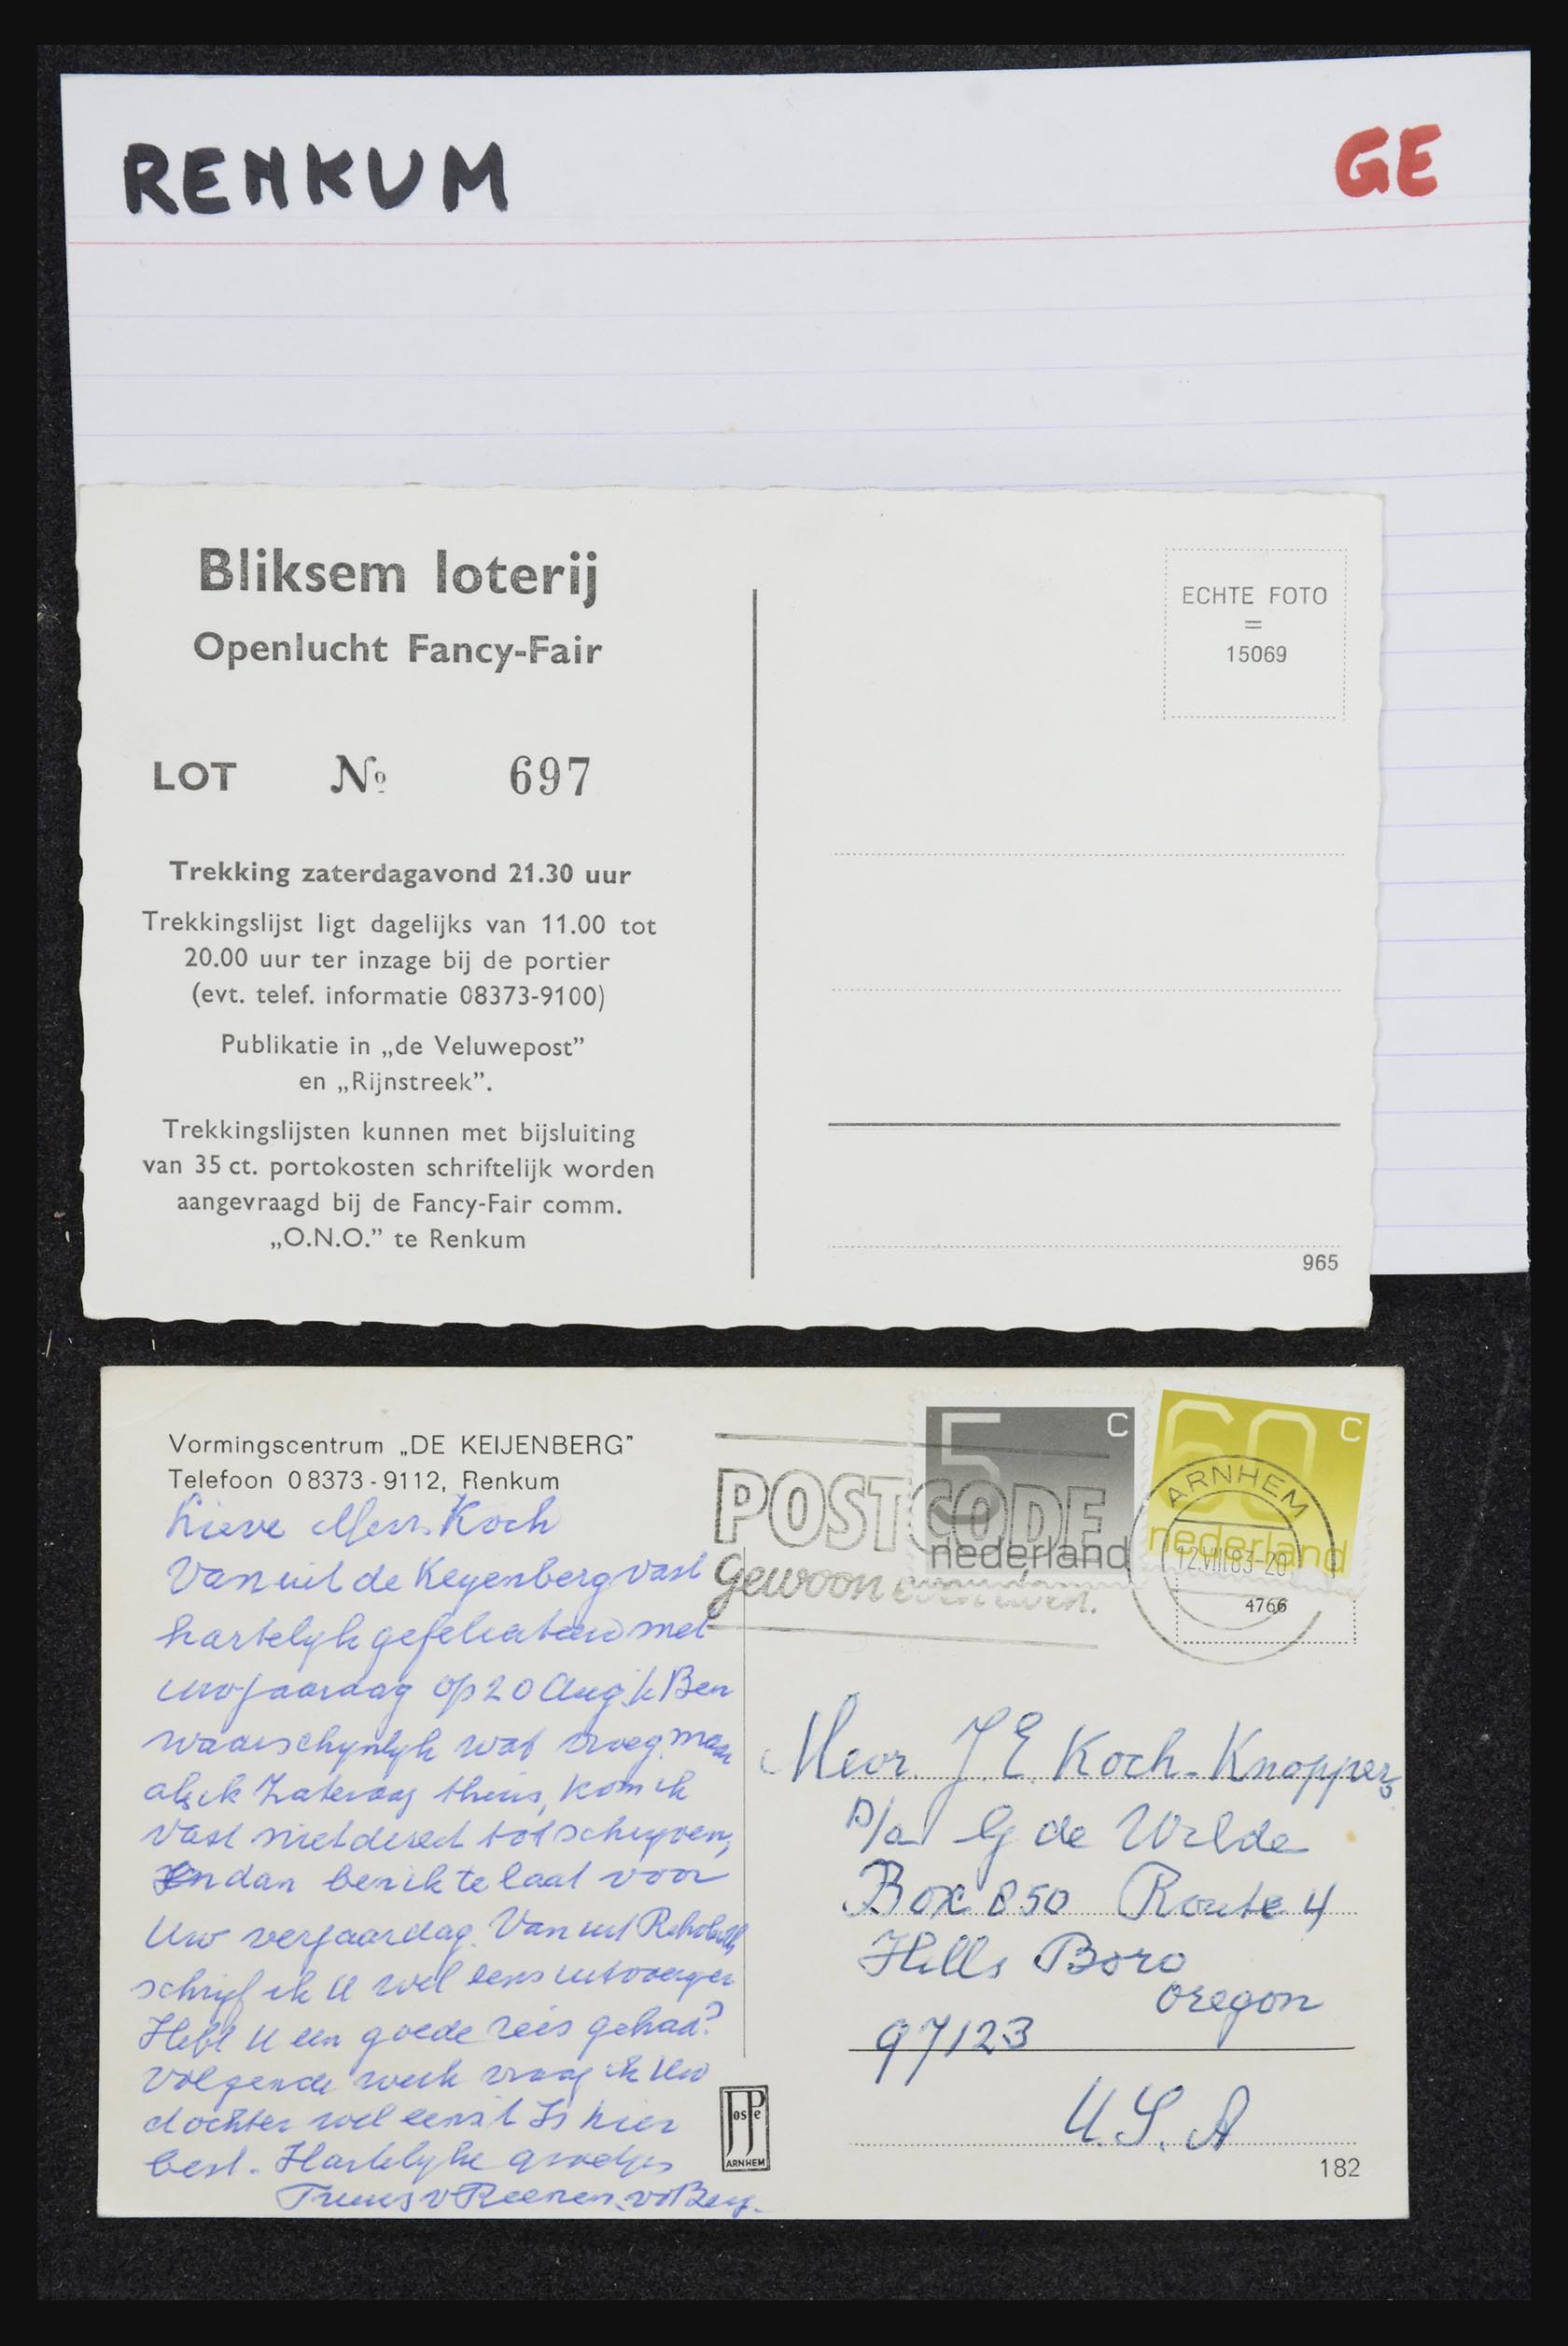 RENKUM
GE
Bliksem loterij
Openlucht Fancy-Fair
LOT № 697
Trekking zaterdagavond 21.30 uur
Trekkingslijst ligt dagelijks van 11.00 tot
20.00 uur ter inzage bij de portier
(evt. telef. informatie 08373-9100)
Publikatie in „de Veluwepost”
en „Rijnstreek”.
Trekkingslijsten kunnen met bijsluiting
van 35 ct. portokosten schriftelijk worden
aangevraagd bij de Fancy-Fair comm.
„O.N.O.” te Renkum
ECHTE FOTO
=
15069
965
Vormingscentrum „DE KEIJENBERG”
Telefoon 08373-9112, Renkum
Lieve Mevr. Koch
Vanuit de Keyenberg vast
hartelyk gefeliciteerd met
uw jaardag op 20 Aug. ik Ben
waarschynlyk wat vroeg maar
als ik Zaterdag thuis, kom ik
vast niet direct tot schryven,
En dan ben ik te laat voor
Uw verjaardag. Vanuit Rehoboth
schrijf ik U wel eens
Hebt U een goede reis gehad?
Volgende week vraag ik Uw
dochter wel eens Is hier
best. Hartelyke groetjes
Truus v Reenen. v d Berg.
5 c
nederland
60 c
nederland
POSTCODE
gewoon even
ARNHEM
12.VIII.83-20
4766
Mevr. J. E. Koch-Knoppers
p/a G de Wilde
Box 850 Route 4
Hills Boro
Oregon
97123
U.S.A
JosPe
ARNHEM
182